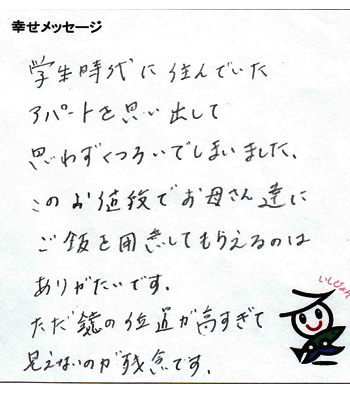 幸せメッセージ
学生時代に住んでいた
アパートを思い出して
思わずくつろいでしまいました。
このお値段でお母さん達に
ご飯を用意してもらえるのは
ありがたいです。
ただ鏡の位置が高すぎて
見えないのが残念です。